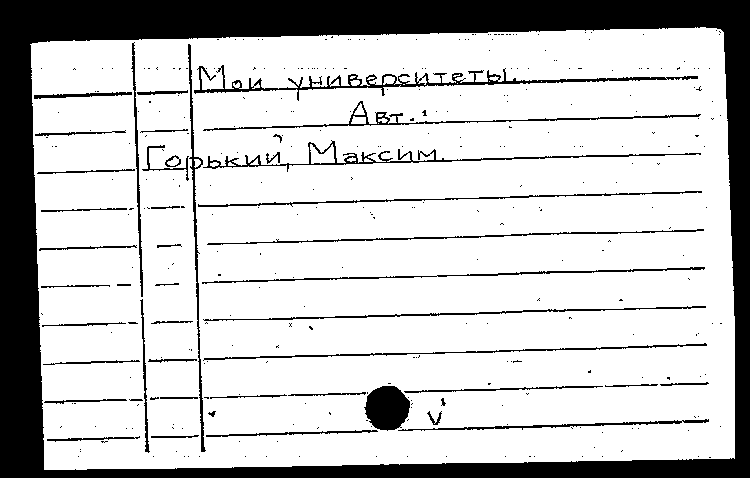 Мои университеты.
Авт.:
Горький, Максим.
v